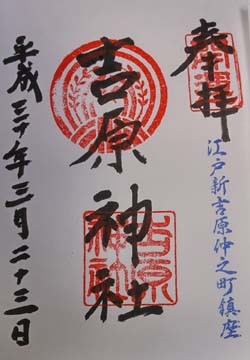 奉拝
江戸新吉原仲之町鎮座
吉原神社
平成三十年三月二十三日